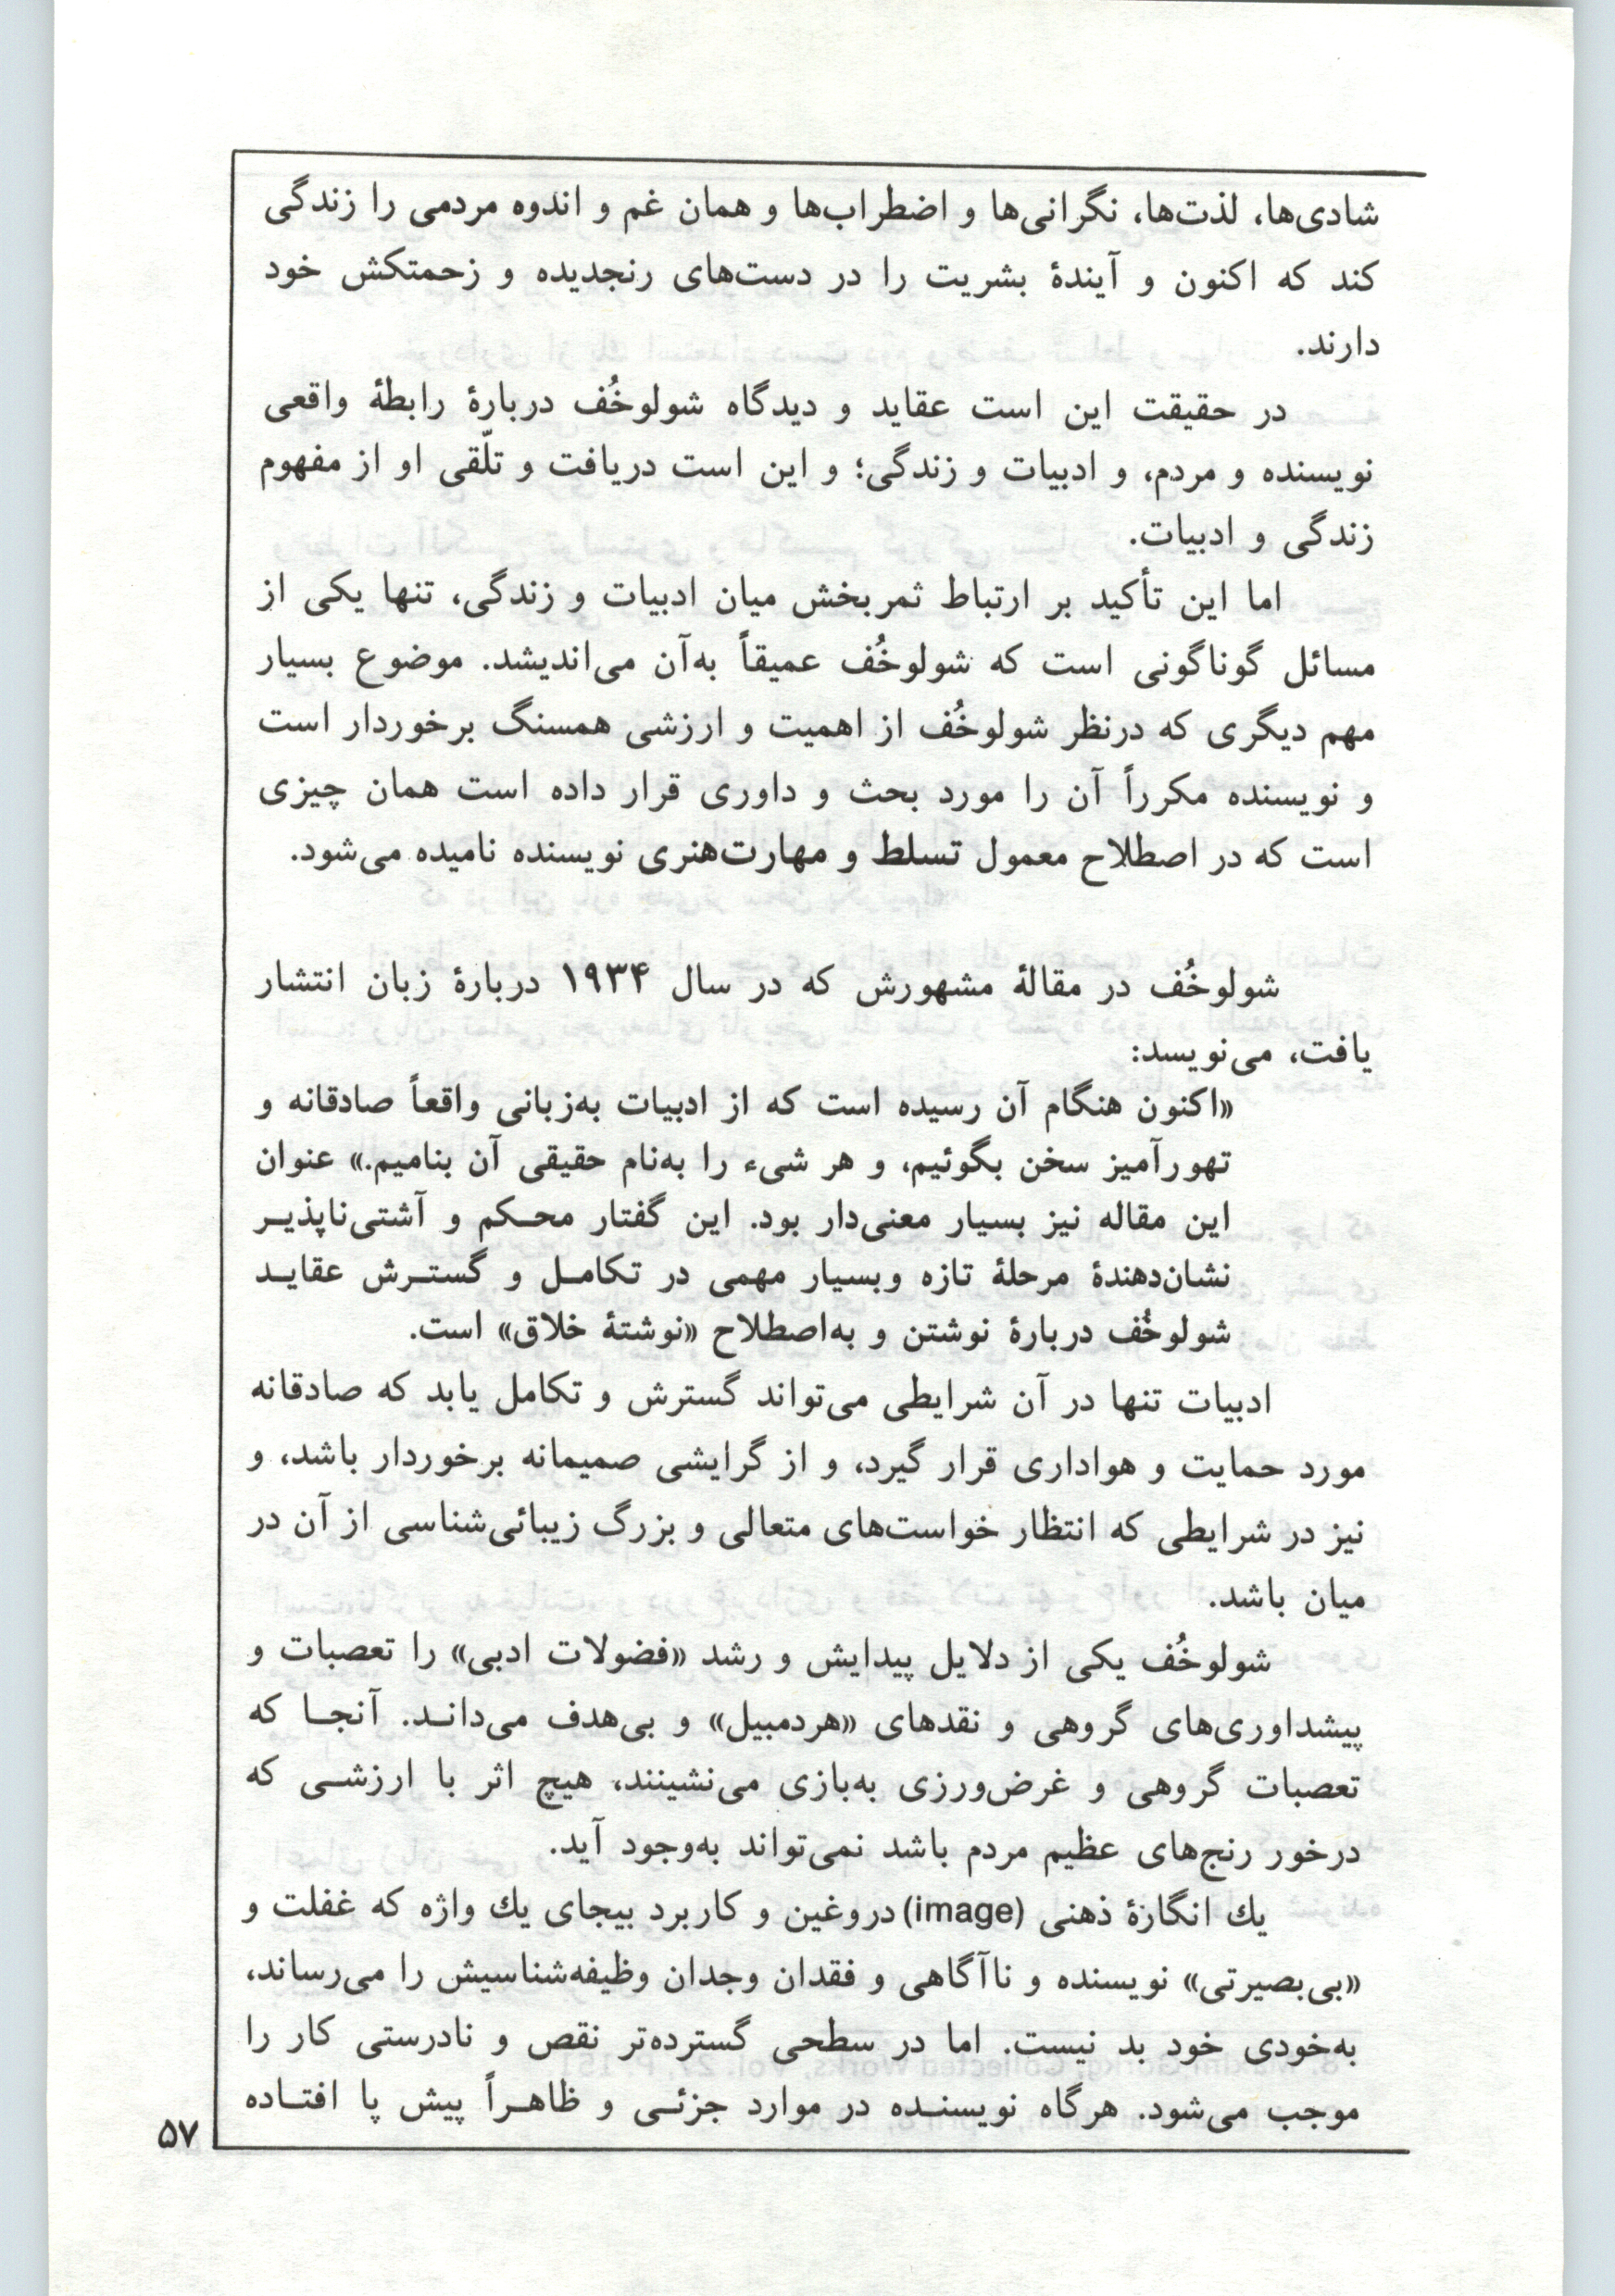 شادی‌ها، لذت‌ها، نگرانی‌ها و اضطراب‌ها و همان غم و اندوه مردمی را زندگی
کند که اکنون و آیندهٔ بشریت را در دست‌های رنجدیده و زحمتکش خود
دارند.
در حقیقت این است عقاید و دیدگاه شولوخُف دربارهٔ رابطهٔ واقعی
نویسنده و مردم، و ادبیات و زندگی؛ و این است دریافت و تلّقی او از مفهوم
زندگی و ادبیات.
اما این تأکید بر ارتباط ثمربخش میان ادبیات و زندگی، تنها یکی از
مسائل گوناگونی است که شولوخُف عمیقاً به‌آن می‌اندیشد. موضوع بسیار
مهم دیگری که درنظر شولوخُف از اهمیت و ارزشی همسنگ برخوردار است
و نویسنده مکرراً آن را مورد بحث و داوری قرار داده است همان چیزی
است که در اصطلاح معمول تسلط و مهارت‌هنری نویسنده نامیده می‌شود.
شولوخُف در مقالهٔ مشهورش که در سال ۱۹۳۴ دربارهٔ زبان انتشار
یافت، می‌نویسد:
«اکنون هنگام آن رسیده است که از ادبیات به‌زبانی واقعاً صادقانه و
تهورآمیز سخن بگوئیم، و هر شیء را به‌نام حقیقی آن بنامیم.» عنوان
این مقاله نیز بسیار معنی‌دار بود. این گفتار محـکم و آشتی‌ناپذیـر
نشان‌دهندهٔ مرحلهٔ تازه وبسیار مهمی در تکامـل و گستـرش عقایـد
شولوخُف دربارهٔ نوشتن و به‌اصطلاح «نوشتهٔ خلاق» است.
ادبیات تنها در آن شرایطی می‌تواند گسترش و تکامل یابد که صادقانه
مورد حمایت و هواداری قرار گیرد، و از گرایشی صمیمانه برخوردار باشد، و
نیز در شرایطی که انتظار خواست‌های متعالی و بزرگ زیبائی‌شناسی از آن در
میان باشد.
شولوخُف یکی از دلایل پیدایش و رشد «فضولات ادبی» را تعصبات و
پیشداوری‌های گروهی و نقدهای «هردمبیل» و بی‌هدف می‌دانـد. آنجـا که
تعصبات گروهی و غرض‌ورزی به‌بازی می‌نشینند، هیچ اثر با ارزشـی که
درخور رنج‌های عظیم مردم باشد نمی‌تواند به‌وجود آید.
يك انگارهٔ ذهنی (image) دروغین و کاربرد بیجای يك واژه که غفلت و
«بی‌بصیرتی» نویسنده و ناآگاهی و فقدان وجدان وظیفه‌شناسیش را می‌رساند،
به‌خودی خود بد نیست. اما در سطحی گسترده‌تر نقص و نادرستی کار را
موجب می‌شود. هرگاه نویسنـده در موارد جزئـی و ظاهـراً پیش پا افتـاده
۵۷